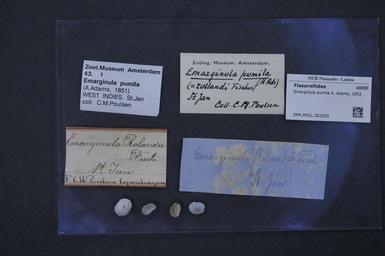 Zool.Museum Amsterdam
43. 1
Emarginula pumila
(A.Adams, 1851)
WEST INDIES, St.Jan
coll. C.M.Poulsen
Zoölog. Museum. Amsterdam.
Emarginula pumila
(= rollandi Fischer)
St Jan
Coll. C. M. Poulsen
NCB Naturalis - Leiden
Fissurellidae
Emarginula pumila A. Adams, 1852
ZMA.MOLL.302202
Emarginula Rolandi
Fisch.
St. Jan
C. M. Poulsen Copenhagen
Emarginula Rolandi Fisch
St. Jan